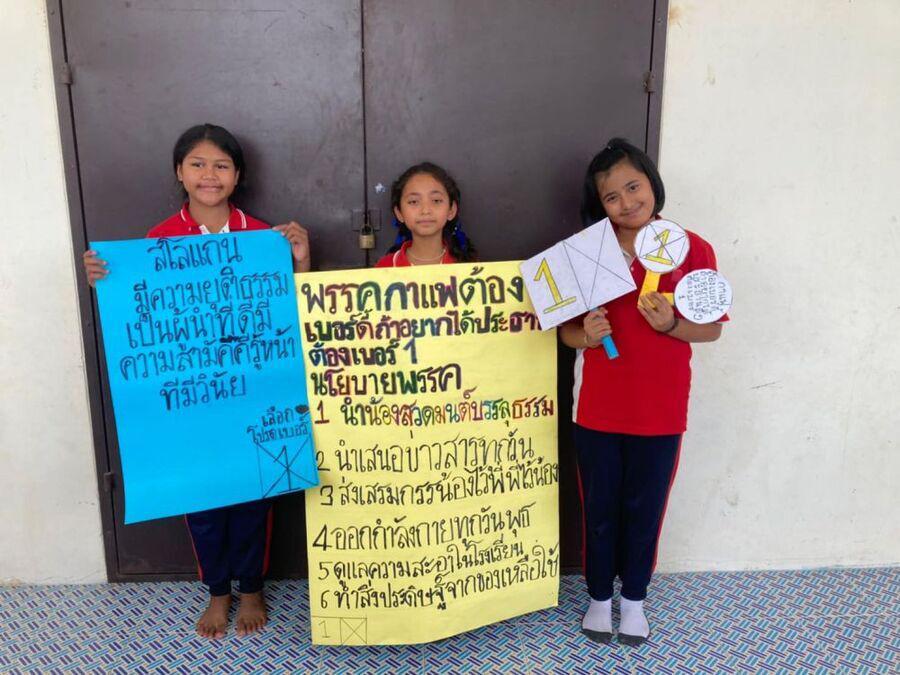 สโลแกน
มีความยุติธรรม
เป็นผู้นำที่ดีมี
ความสามัคคีรู้หน้า
ที่มีวินัย
เลือก
โปรดเบอร์
1
พรรคกาแฟต้อง
เบอร์ดี้ถ้าอยากได้ประธาน
ต้องเบอร์ 1
นโยบายพรรค
1 นำน้องสวดมนต์บรรลุธรรม
2 นำเสนอข่าวสารทุกวัน
3 ส่งเสรมการน้องไว้พี่ พี่ไว้น้อง
4 ออกกำลังกายทุกวัน พุธ
5 ดูแลความสะอาในโรงเรียน
6 ทำสิ่งประดิษฐ์จากของเหลือใช้
1
1
1